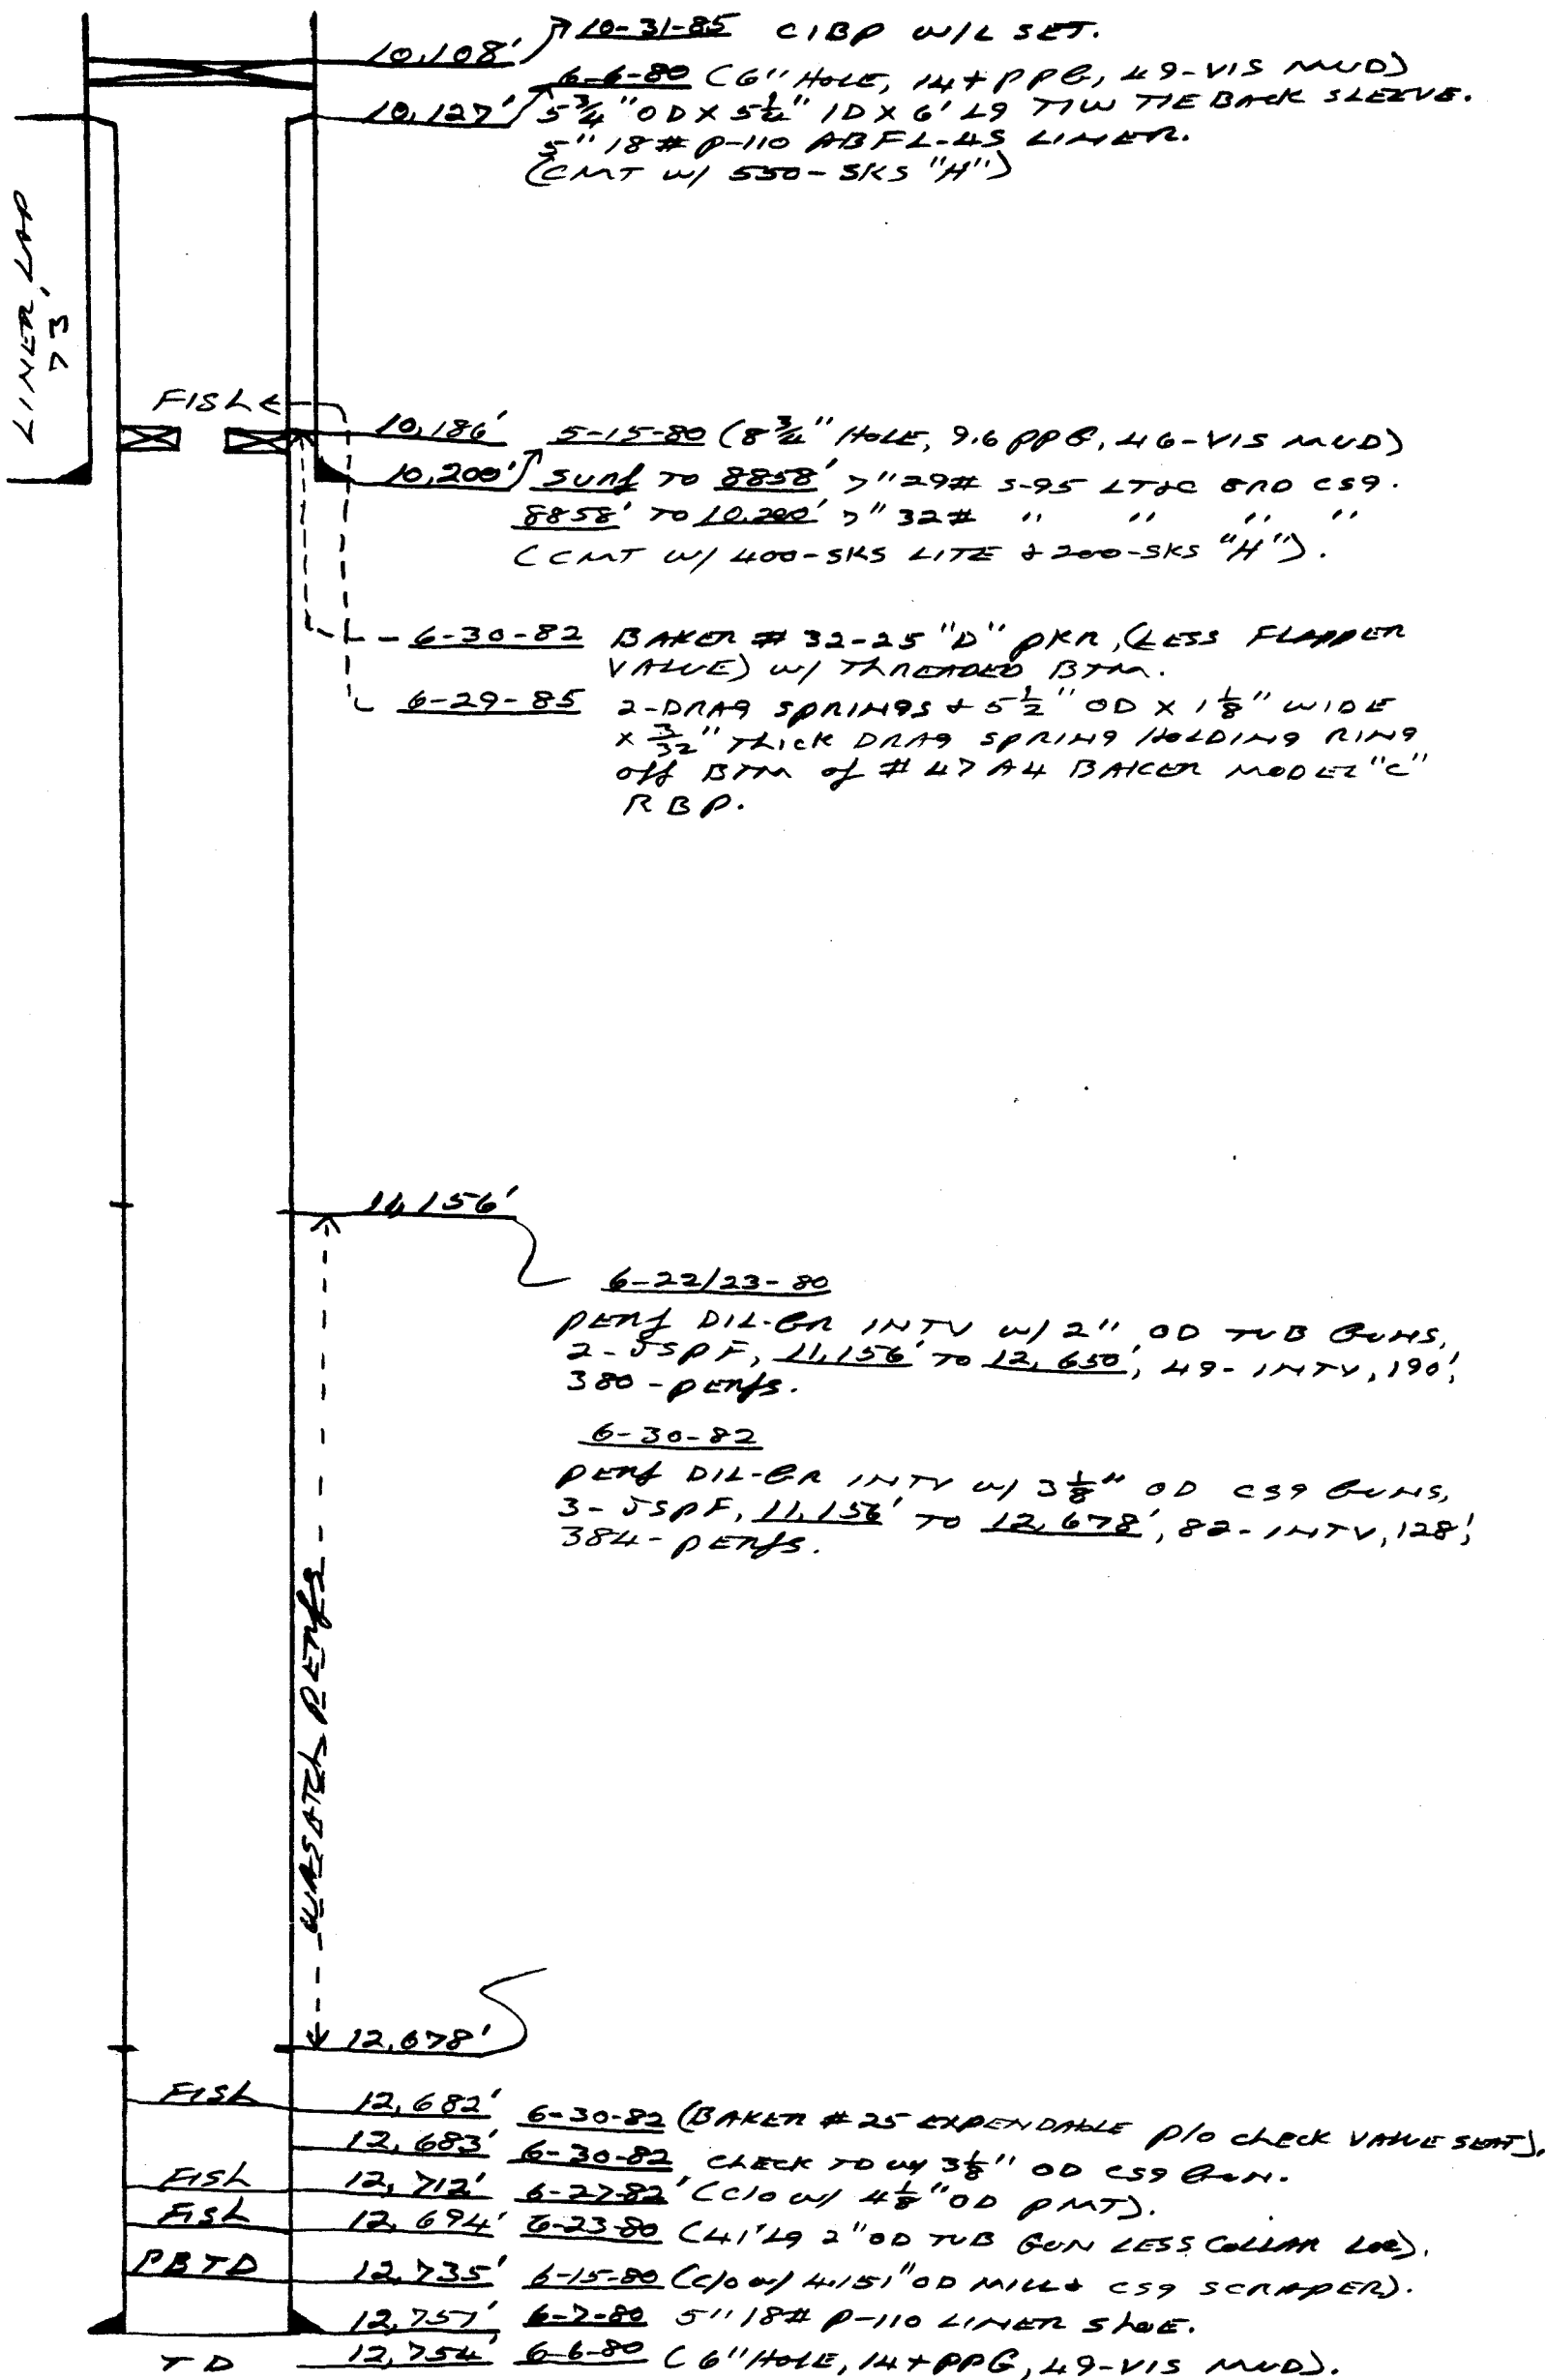 10,108' 10-31-85 CIBP W/L SET.
6-6-80 (6" HOLE, 14+ PPG, 49-VIS MUD)
10,127' 5 3/4" OD X 5 1/4" ID X 6' Lg TIW TIE BACK SLEEVE.
5" 18# P-110 ABFL-4S LINER.
(CMT W/ 550-SKS "H")
LINER LAP
73'
FISH
10,186' 5-15-80 (8 3/4" HOLE, 9.6 PPG, 46-VIS MUD)
10,200' Surf TO 8858' 7" 29# S-95 LT&C 8RD CSg.
8858' TO 10,200' 7" 32# " " " "
(CMT W/ 400-SKS LITE & 200-SKS "H").
6-30-82 BAKER # 32-25 "D" PKR, (LESS FLAPPER
VALVE) W/ THREADED BTM.
6-29-85 2-DRAg SPRINgS & 5 1/2" OD X 1 1/8" WIDE
X 3/32" Thick DRAg SPRINg HOLDINg RINg
off BTM of # 47 A4 BAKER MODEL "C"
RBP.
11,156'
6-22/23-80
PERf DIL-GR INTV W/ 2" OD TUB GUNS,
2-JSPF, 11,156' TO 12,650', 49-INTV, 190',
380-PERfS.
6-30-82
PERf DIL-GR INTV W/ 3 1/8" OD CSg GUNS,
3-JSPF, 11,156' TO 12,678', 82-INTV, 128',
384-PERfS.
WASATCh PERfS
12,678'
FISh 12,682' 6-30-82 (BAKER # 25 EXPENDABLE P/O ChECK VALVE SEAT).
12,683' 6-30-82 ChECK TD W/ 3 1/8" OD CSg GUN.
FISh 12,712' 6-27-82 (C/O W/ 4 1/8" OD PMT).
FISh 12,694' 6-23-80 (41' Lg 2" OD TUB GUN LESS COLLAR LOC).
PBTD 12,735' 6-15-80 (C/O W/ 4.151" OD MILL & CSg SCRAPER).
12,757' 6-7-80 5" 18# P-110 LINER ShOE.
TD 12,754' 6-6-80 (6" HOLE, 14+ PPG, 49-VIS MUD).